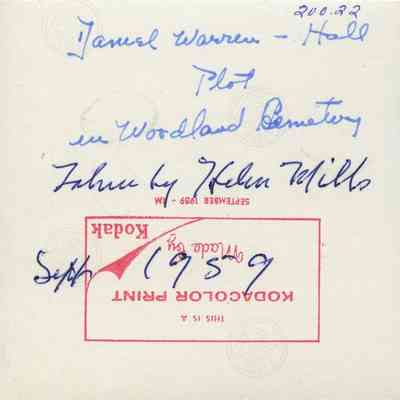 200.22
Daniel Warren - Hall
Plot
in Woodland Cemetery
Taken by Helen Mills
SEPTEMBER 1959 - 8M
Kodak
Made by
Sept 1959
KODACOLOR PRINT
THIS IS A